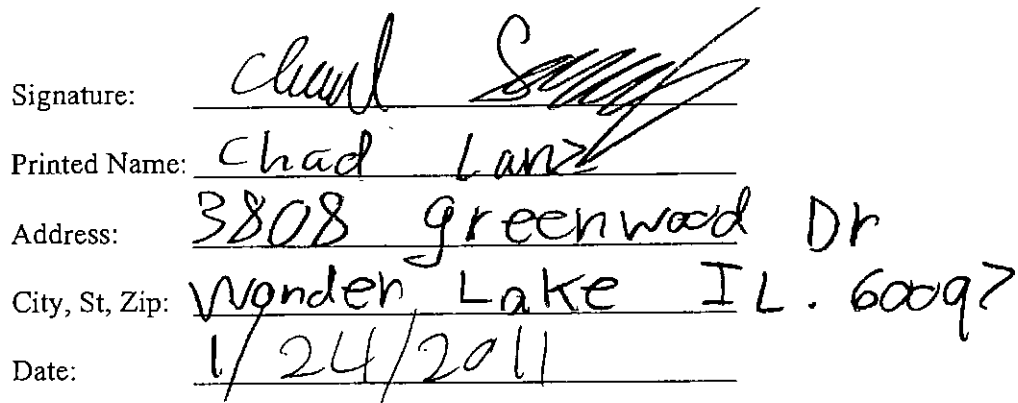 Signature: Chad
Printed Name: Chad Lanz
Address: 3808 greenwood Dr
City, St, Zip: Wonder Lake IL. 60097
Date: 1/24/2011